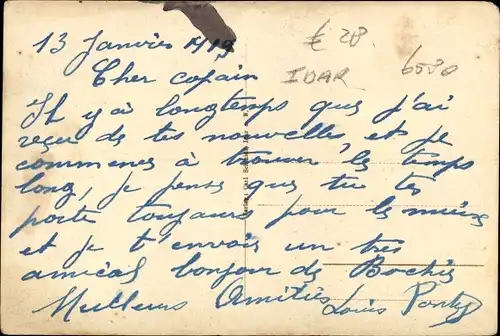 13 Janvier 1919
€ 28
IDAR
6580
Cher copain
Il y à longtemps que j'ai
reçu de tes nouvelles et je
commence à trouver le temps
long, je pense que tu tes
porte toujours pour le mieux
et je t'envois un très
amical bonjour de Bochie
Meilleurs Amitiés Louis